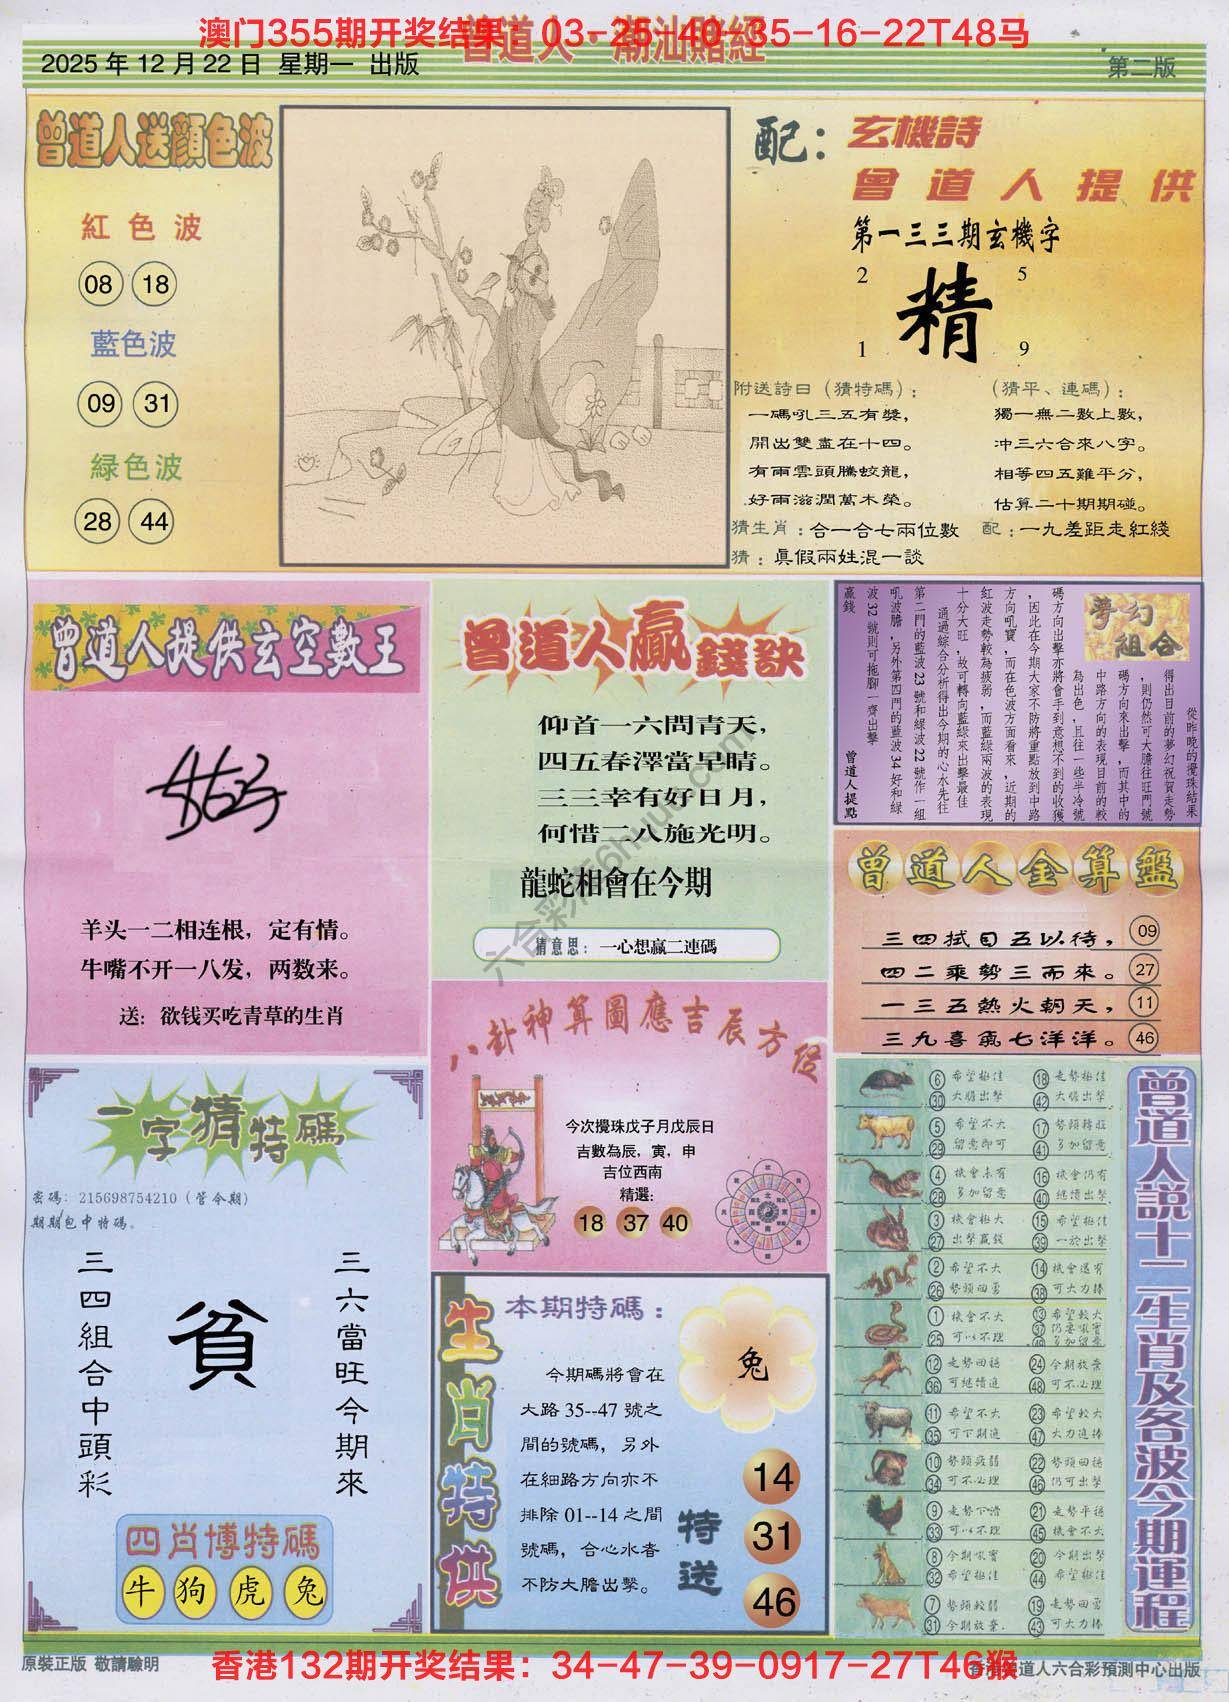 澳门355期开奖结果：03-25-40-35-16-22T48马
曾道人·潮汕賭經
2025 年 12 月 22 日 星期一 出版
第二版
曾道人送顏色波
紅 色 波
08 18
藍色波
09 31
緑色波
28 44
配：玄機詩
曾道人提供
第一三三期玄機字
2 5
精
1 9
附送詩日（猜特碼）：
一碼吼三五有獎，
開出雙盡在十四。
有兩雲頭騰蛟龍，
好雨滋潤萬木榮。
（猜平、連碼）：
獨一無二數上數，
冲三六合來八字。
相等四五難平分，
估算二十期期碰。
猜生肖：合一合七兩位數
配：一九差距走紅綫
猜：真假兩姓混一談
曾道人提供玄空數王
羊头一二相连根，定有情。
牛嘴不开一八发，两数来。
送：欲钱买吃青草的生肖
曾道人贏錢訣
仰首一六問青天，
四五春澤當早晴。
三三幸有好日月，
何惜二八施光明。
龍蛇相會在今期
猜意思：一心想贏二連碼
夢幻組合
從昨晚的攪珠結果
得出目前的夢幻祝賀走勢
，則仍然可大膽往旺門號
碼方向來出擊，而其中的
中路方向的表現目前的較
為出色，且往一些半冷號
碼方向出擊亦將會手到意想不到的收獲
，因此在今期大家不防將重點放到中路
方向吼寶，而在色波方面看來，近期的
紅波走勢較為疲弱，而藍綠兩波的表現
十分大旺，故可轉向藍綠來出擊最佳
通過綜合分析得出今期的心水先往
第二門的藍波 23 號和綠波 22 號作一組
吼波膽，另外第四門的藍波 34 好和綠
波 32 號則可拖腳一齊出擊
贏錢
曾道人提點
曾道人金算盤
三四拭目五以待，09
四二乘勢三而來。27
一三五熱火朝天，11
三九喜氣七洋洋。46
八卦神算圖應吉辰方位
今次攪珠戊子月戊辰日
吉數為辰，寅，申
吉位西南
精選：
18 37 40
一字猜特碼
密碼：215698754210（管今期）
期期包中特碼。
三四組合中頭彩
貧
三六當旺今期來
四肖博特碼
牛 狗 虎 兔
生肖特供
本期特碼：
兔
今期碼將會在
大路 35--47 號之
間的號碼，另外
在細路方向亦不
排除 01--14 之間
號碼，合心水者
不防大膽出擊。
特送
14
31
46
曾道人説十二生肖及各波今期運程
6 希望極佳 18 走勢極佳
30 大膽出擊 42 大膽出擊
5 希望不大 17 勢頭轉旺
29 留意即可 41 多加留意
4 機會未有 16 機會仍有
28 多加留意 40 繼續出擊
3 機會極大 15 希望極佳
27 出擊贏錢 39 一於出擊
2 希望不大 14 機會還有
26 勢頭回勇 38 可大力捧
1 機會不大 13 希望較大
25 可以不理 37 仍要吼實
49 多加留意
12 走勢回穩 24 今期放棄
36 可繼續追 48 可不必理
11 希望不大 23 希望較大
35 可下期追 47 大力追捧
10 勢頭疲弱 22 勢頭回穩
34 可不必理 46 仍可出擊
9 走勢下滑 21 走勢平穩
33 可以不理 45 機會不大
8 今期吼實 20 今期出擊
32 希望極佳 44 希望極佳
7 勢頭較弱 19 走勢回勇
31 今期放棄. 43 可大力捧
六合彩 756huu.com
原裝正版 敬請驗明
香港132期开奖结果：34-47-39-0917-27T46猴
香港曾道人六合彩預測中心出版